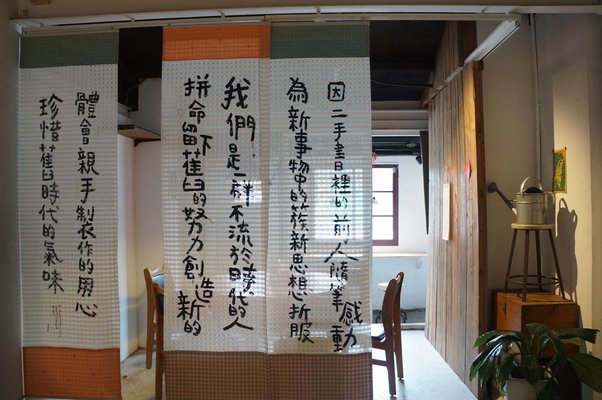 因二手書裡的前人隨筆感動
為新事物中的簇新思想折服
我們是一群不流於時代的人
拼命留下舊的努力創造新的
體會親手製作的用心
珍惜舊時代的氣味